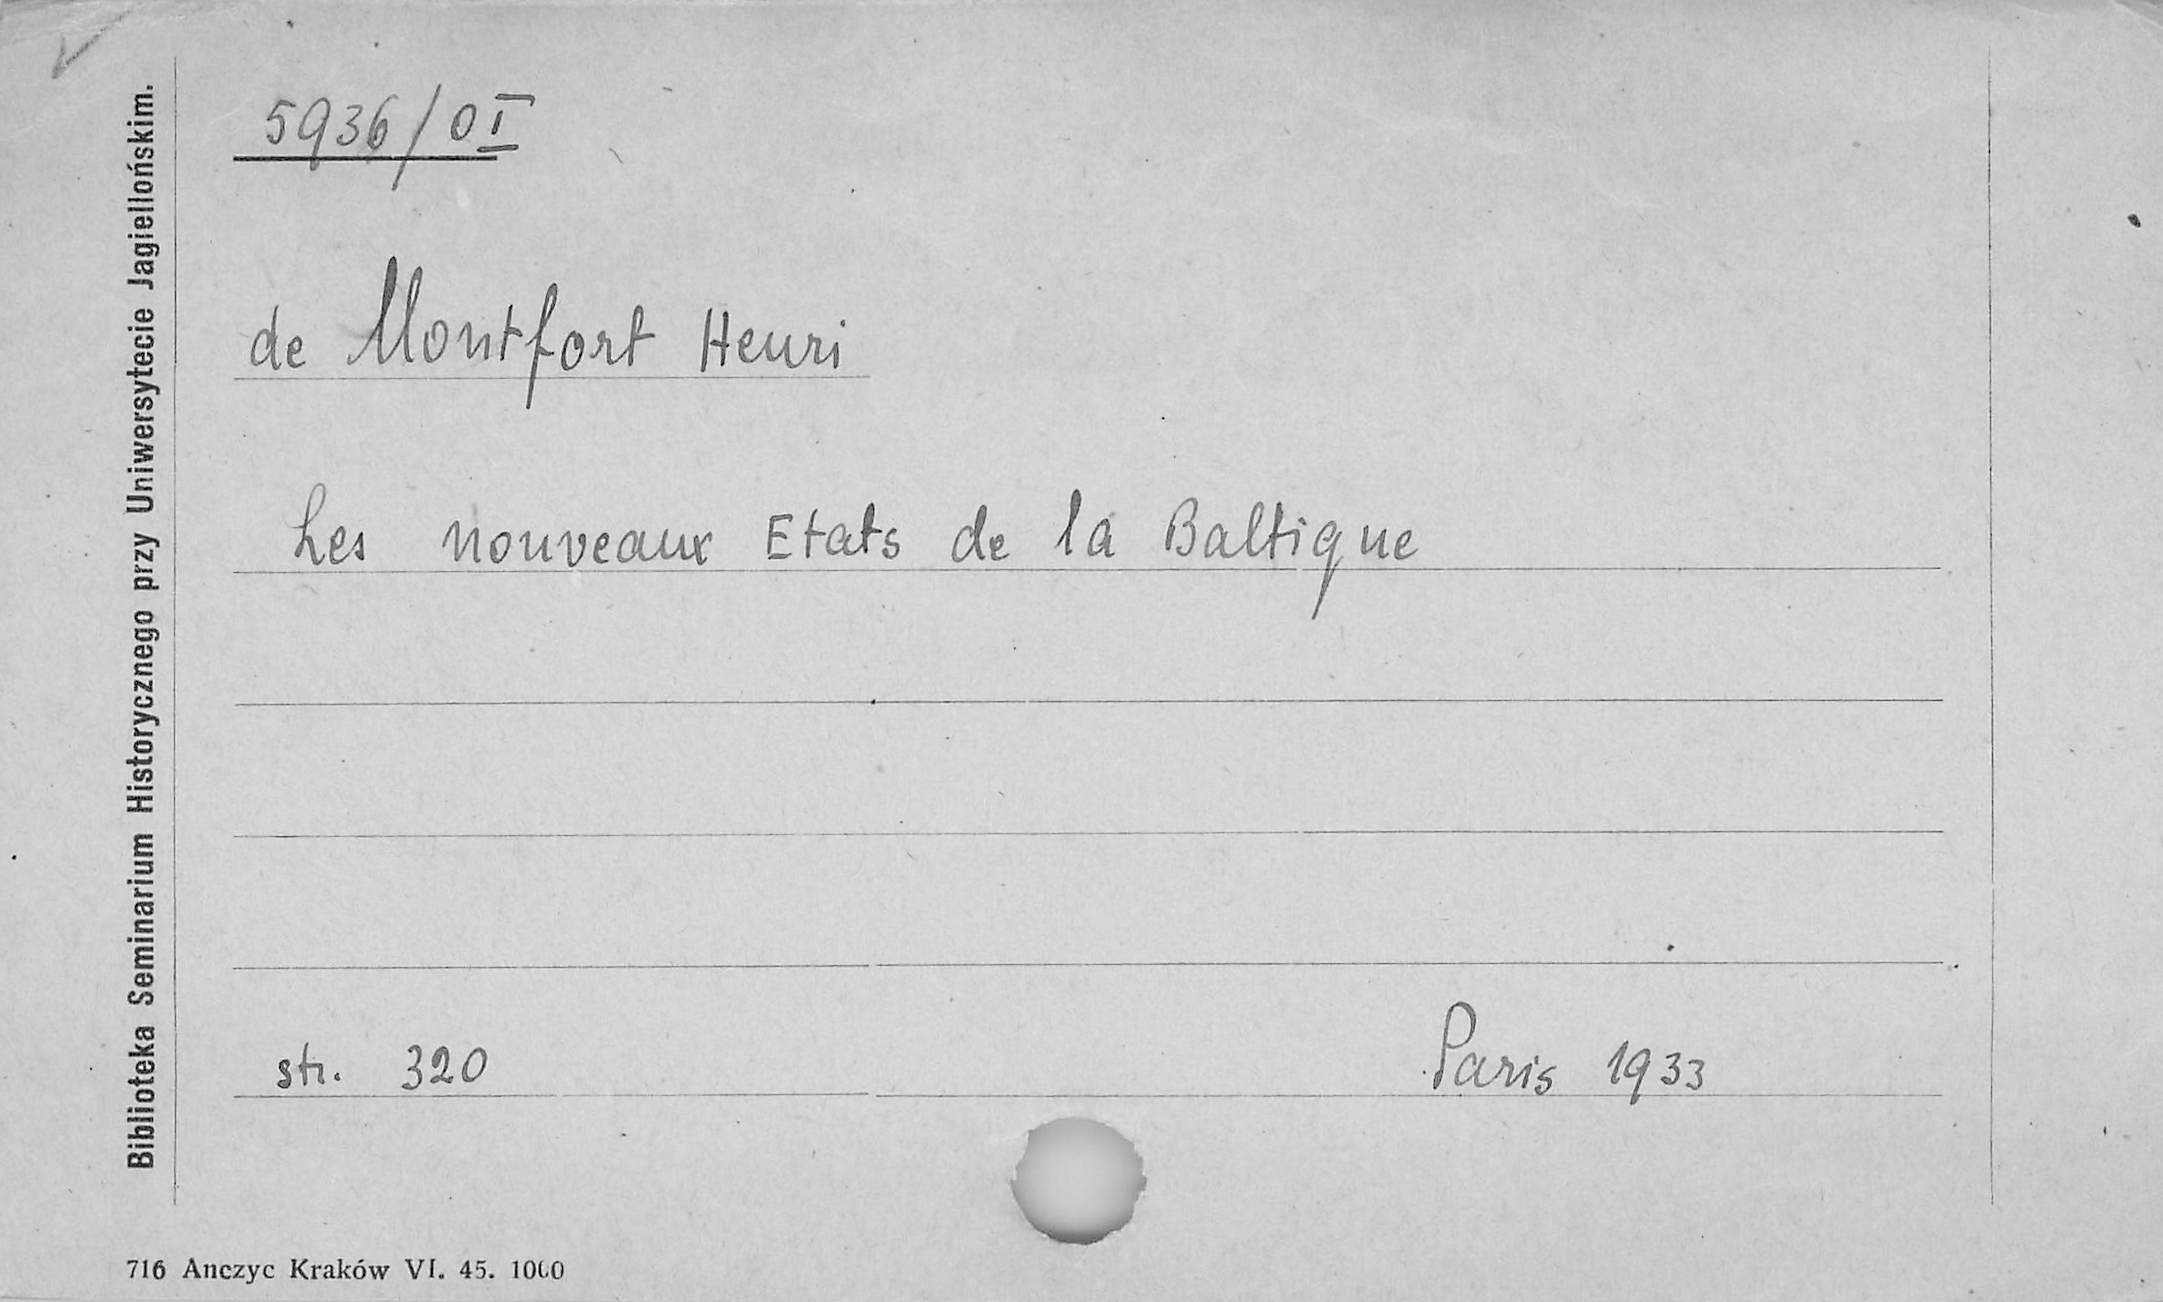 5936/0I
de Montfort Henri
Les nouveaux Etats de la Baltique
str. 320
Paris 1933
Biblioteka Seminarium Historycznego przy Uniwersytecie Jagiellońskim.
716 Anczyc Kraków VI. 45. 1000